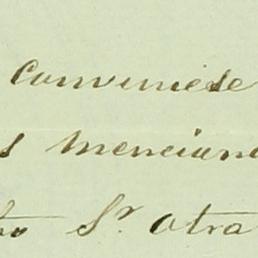 Conveniese
s mencion
to Sr. otra